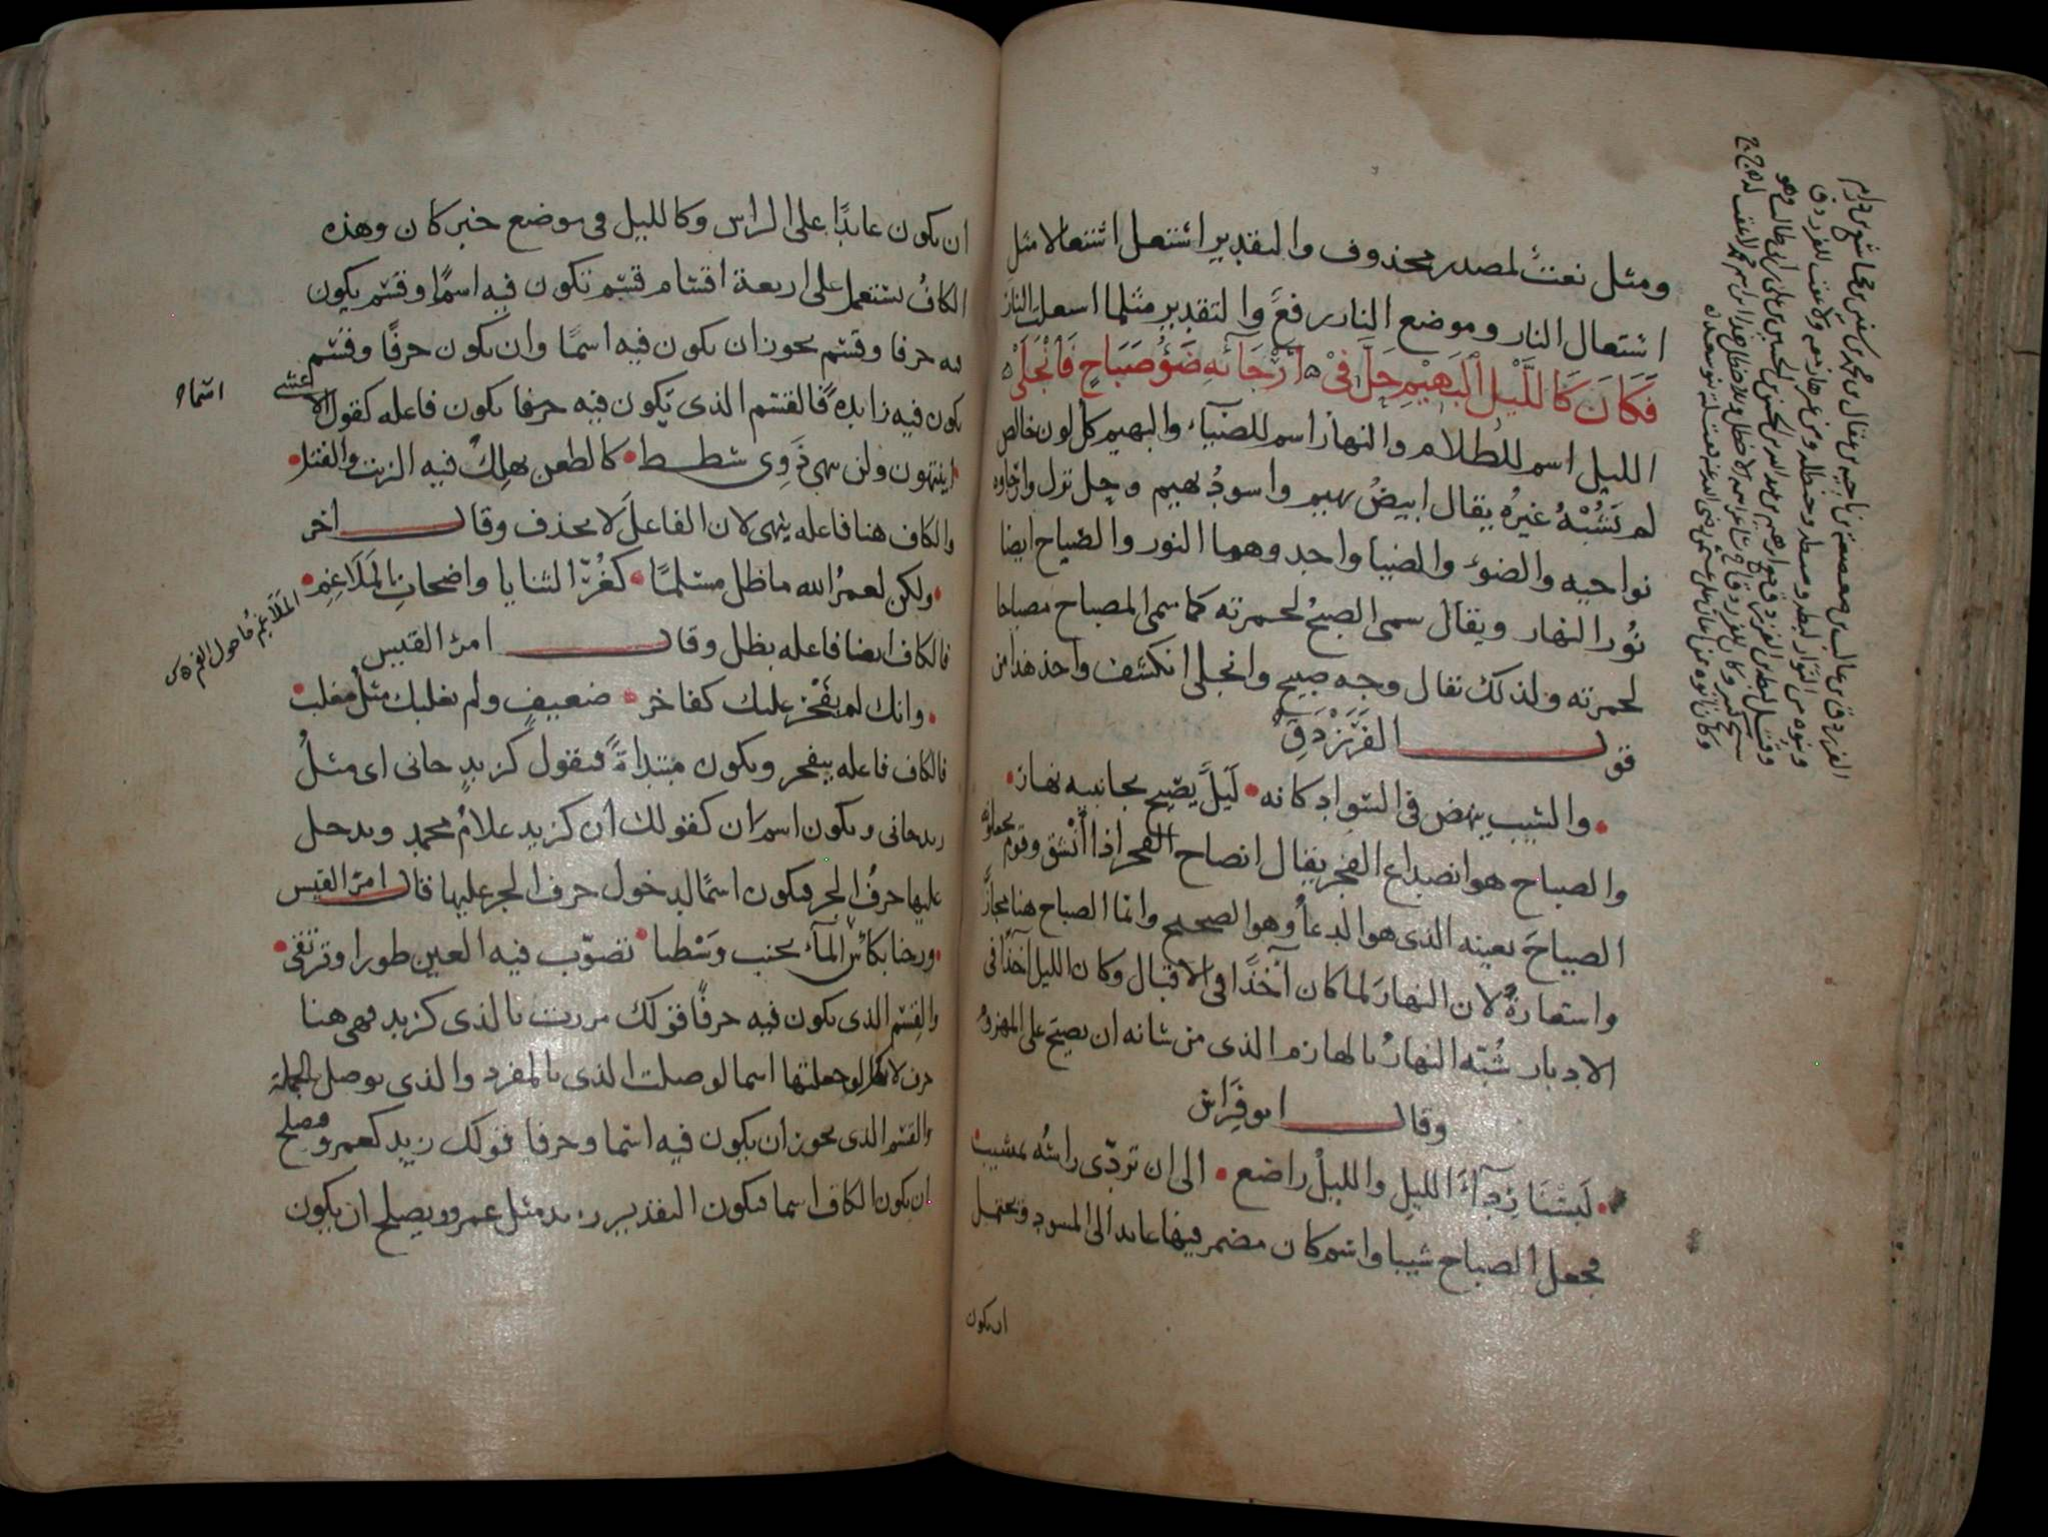 ومثل نعتٌ لمصدر محذوف والتقدير اشتعل اشتعالا مثل
اشتعال النار وموضع النار رفع والتقدير مثلما اشتعلت النار
فَكَانَ كَاللَّيْلِ الْبَهِيْمِ حَلَّ فِيْ أَرْجَائِهِ ضَوْءُ صَبَاحٍ فَانْجَلَى
الليل اسم للظلام والنهار اسم للضياء والبهيم كل لون خالص
لم يَشُبْهُ غيرُه يقال ابيضُ بهيم واسودُ بهيم وحل نزل وارجاوه
نواحيه والضوء والضيا واحد وهما النور والصباح ايضا
نُور النهار ويقال سمى الصبحُ لحمرته كما سمى المصباح مصباحا
لحمرته ولذلك يقال وجه صبيح وانجلى انكشف واخذ هذا من
قول الفَرَزْدَقِ
والشيب ينهض في السواد كانه ليلٌ يصيح بجانبيه نهار
والصباح هو انصداع الفجر يقال انصاح الفجر اذا انْشق وقوم يجعلون
الصياحَ بعينه الذى هو الدعاُ وهو الصحيح وانما الصياح هنا مجازٌ
واستعارةٌ لان النهارَ لما كان آخذًا فى الاقبال وكان الليل آخذًا فى
الادبار شُبّه النهارُ بالهازم الذى من شانه ان يصيح على المهزوم
وقال ابو فِرَاس
لَبِسْنَا رِدَآءَ الليلِ والليلُ راضع الى ان تردّى راسُه بمشيب
فجعل الصباح شيبا واسم كان مضمر فيها عايد الى المسود ويحتمل
ان يكون
ان يكون عايدًا على الراس وكالليل فى موضع خبر كان وهذه
الكافُ تستعمل على اربعة اقسام قسم تكون فيه اسمًا وقسم يكون
فيه حرفا وقسم يجوز ان يكون فيه اسمًا وان يكون حرفًا وقسم
يكون فيه زايدةً فالقسم الذى يكون فيه حرفا يكون فاعله كقول الاعشى
اسماه
اينتهون ولن ينهى ذَوِى شطط كالطعن يهلِكُ فيه الزيت والفتل
والكاف هنا فاعله ينهى لان الفاعلَ لا يحذف وقال اخر
ولكن لعمرُ الله ما ظل مسلمًا كغُرّ الثنايا واضحاتِ المَلَاغِمِ
المَلَاغِمُ ما حول الفم
فالكاف ايضا فاعله بظل وقال امرؤ القيس
وانك لم يفْخَر عليك كفاخر ضعيفٍ ولم يغلبك مثلُ مغلب
فالكاف فاعله بيفخر ويكون مبتداةً فتقول كزيدٍ جانى اى مثلُ
زيد جانى ويكون اسم ان كقولك ان كزيد غلامُ محمد ويدخل
عليها حرفُ الجر فتكون اسمًا لدخول حرف الجر عليها قال امرؤ القيس
ورحنا بكابْنِ المآءِ يجنب وَسْطنا تصوّب فيه العين طورا وترتقى
والقسم الذى يكون فيه حرفًا قولك مررت بالذى كزيد فهى هنا
حرف لانك لو جعلتها اسما لوصلت الذى بالمفرد والذى يوصل بالجملة
والقسم الذى يجوز ان يكون فيه اسما وحرفا قولك زيد كعمرو فيصلح
ان يكون الكاف اسما فيكون التقدير زيد مثل عمرو ويصلح ان يكون